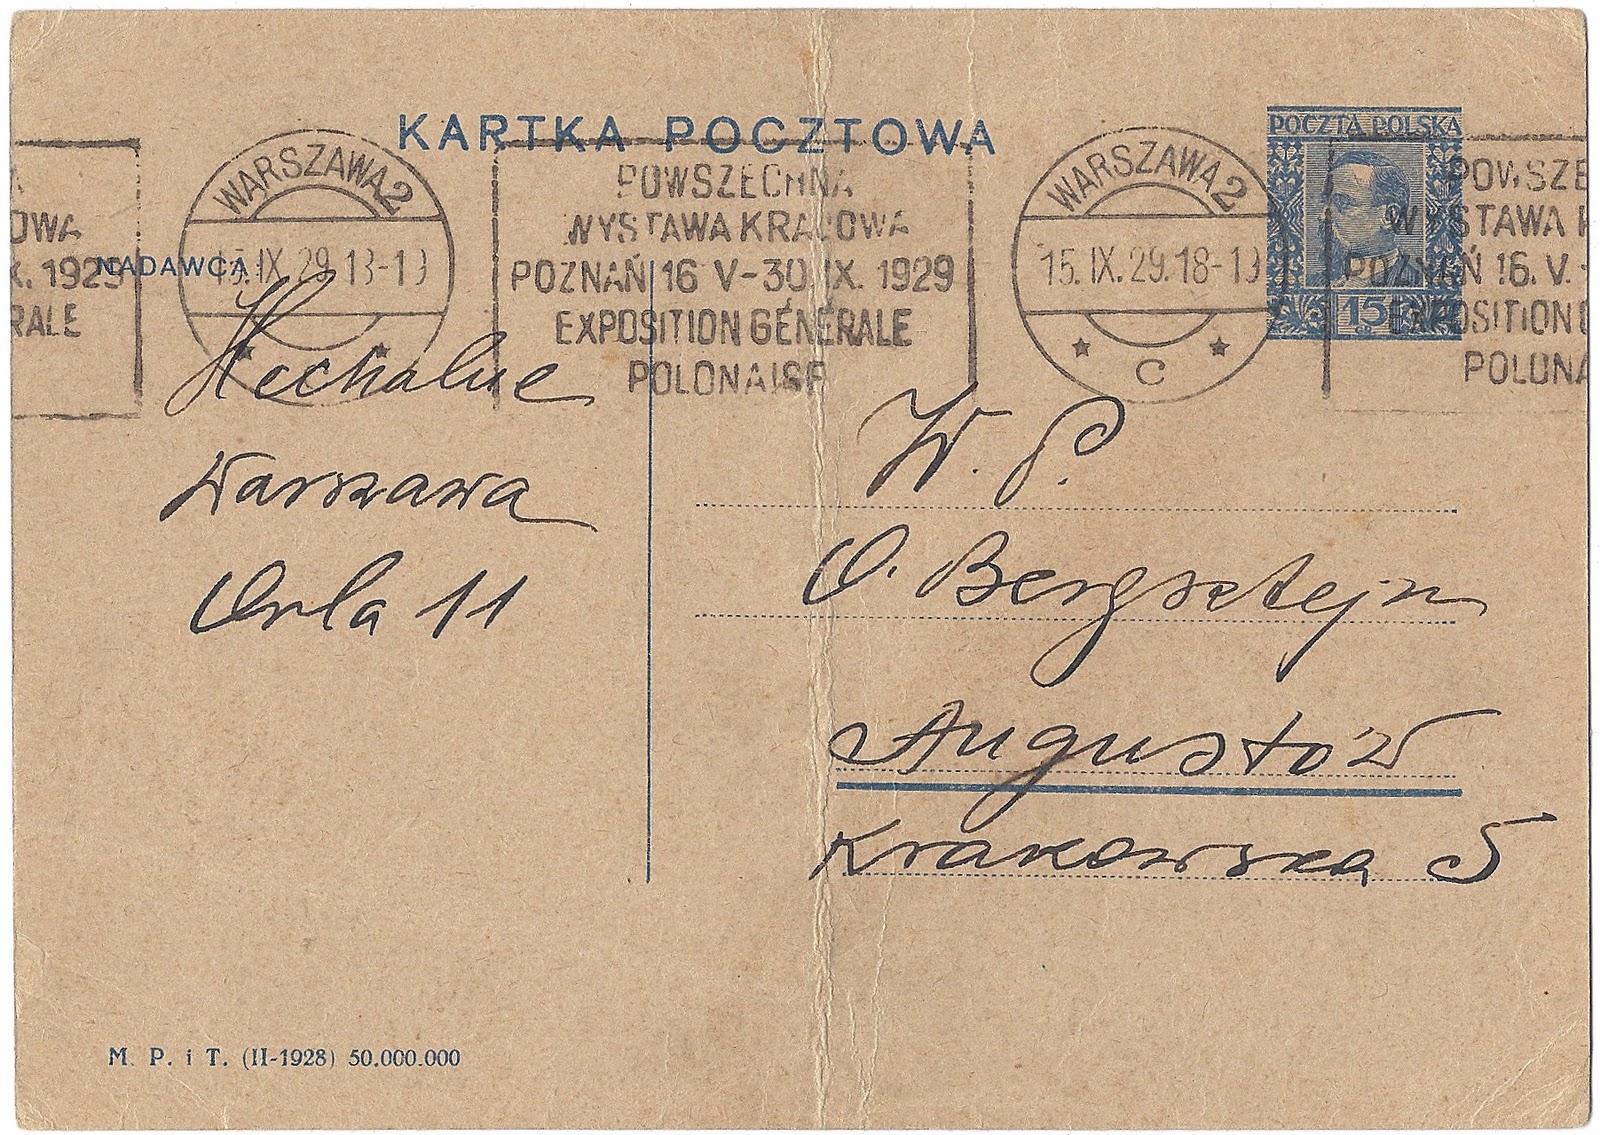 KARTKA POCZTOWA
POCZTA POLSKA
15
OWA
X. 1929
RALE
WARSZAWA 2
15.IX.29.18-19
POWSZECHNA
WYSTAWA KRAJOWA
POZNAŃ 16 V-30.IX. 1929
EXPOSITION GÉNÉRALE
POLONAISE
WARSZAWA 2
15.IX.29.18-19
C
POWSZE
WYSTAWA K
POZNAŃ 16.V.-
EXPOSITION G
POLONA
NADAWCA:
Warszawa
Orla 11
W. P.
O. Bergsztejn
Augustów
Krakowska 5
M. P. i T. (II-1928) 50.000.000